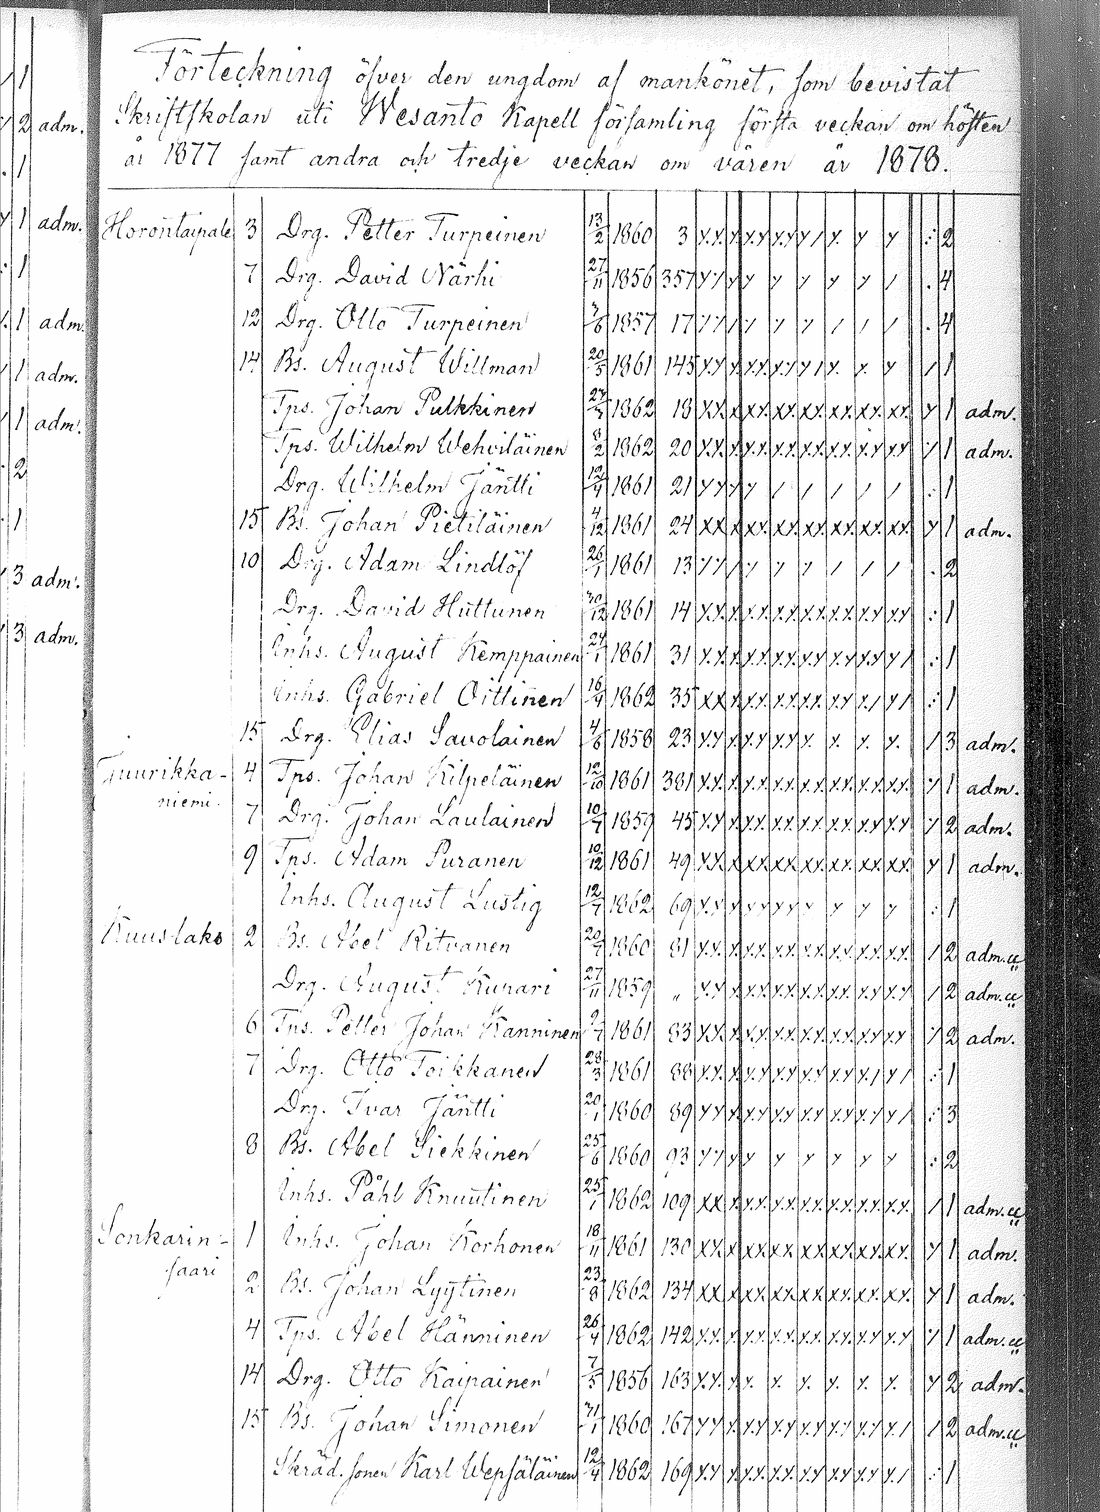 Förteckning öfver den ungdom af mankönet, som bevistat
Skriftskolan uti Wesanto Kapell församling första veckan om hösten
år 1877 samt andra och tredje veckan om våren år 1878.
1
2 adm.
1
1 adm.
1
1 adm.
1 adm.
1 adm.
2
1
3 adm.
3 adm.
Horontaipale 3 Drg. Petter Turpeinen 13/2 1860 3 2
7 Drg. David Närhi 27/11 1856 357 4
12 Drg. Otto Turpeinen 1857 17 4
14 Bs. August Willman 20/5 1861 145 1
Tps. Johan Pulkkinen 1862 18 1 adm.
Tps. Wilhelm Wehviläinen 8/2 1862 20 1 adm.
Drg. Wilhelm Jäntti 12/4 1861 21 1
15 Bs. Johan Pietiläinen 4/12 1861 24 1 adm.
10 Drg. Adam Lindlöf 26/1 1861 13 2
Drg. David Huttunen 30/12 1861 14 1
Inhs. August Kemppainen 24/1 1861 31 1
Inhs. Gabriel Oittinen 16/4 1862 35 1
15 Drg. Elias Savolainen 4/6 1858 23 3 adm.
Tuurikka- 4 Tps. Johan Kilpeläinen 12/10 1861 381 1 adm.
niemi. 7 Drg. Johan Laulainen 10/7 1859 45 2 adm.
9 Tps. Adam Puranen 10/12 1861 49 1 adm.
Inhs. August Lustig 12/7 1862 69 1
Kuuslaks 2 Bs. Abel Ritvanen 20/7 1860 81 2 adm.
Drg. August Kurari 27/11 1859 „ 2 adm.
6 Tps. Petter Johan Kanninen 1861 83 2 adm.
7 Drg. Otto Toikkanen 28/3 1861 88 1
Drg. Ivar Jäntti 20/1 1860 89 3
8 Bs. Abel Siekkinen 25/6 1860 93 2
Inhs. Påhl Knuutinen 25/1 1862 109 1 adm.
Sonkarin- 1 Inhs. Johan Korhonen 18/11 1861 130 1 adm.
saari 2 Bs. Johan Lyytinen 23/8 1862 134 1 adm.
4 Tps. Abel Hänninen 26/4 1862 142 1 adm.
14 Drg. Otto Kaipainen 7/5 1856 163 2 adm.
15 Bs. Johan Simonen 31/1 1860 167 2 adm.
Skräd. sonen Karl Wepsäläinen 12/4 1862 169 1